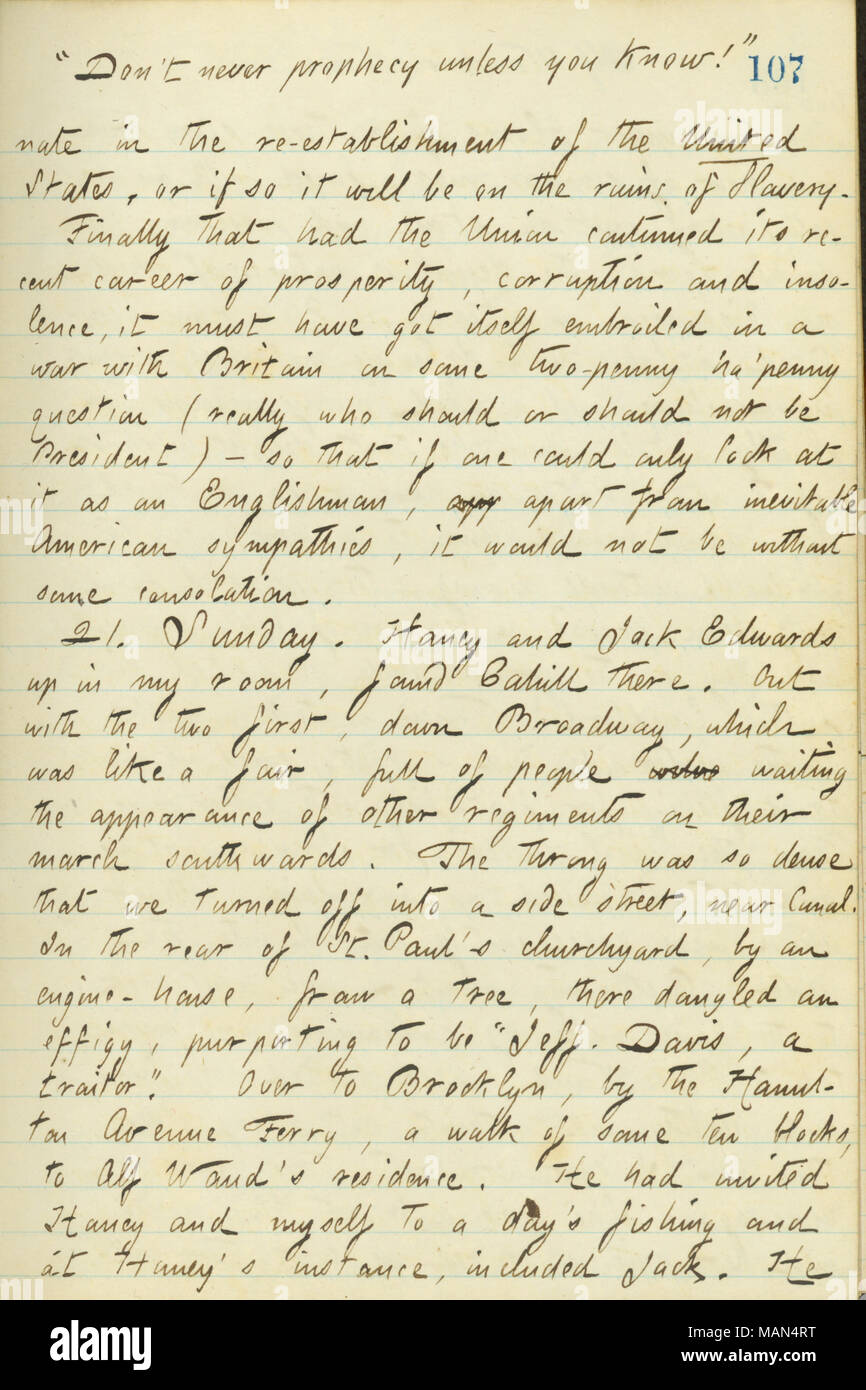 "Don't never prophecy unless you know!" 107
nate in the re-establishment of the United
States, or if so it will be on the ruins of Slavery.
Finally that had the Union continued its re-
cent career of prosperity, corruption and inso-
lence, it must have got itself embroiled in a
war with Britain on some two-penny ha'penny
question (really who should or should not be
President) — so that if one could only look at
it as an Englishman, apart from inevitable
American sympathies, it would not be without
some consolation.
21. Sunday. Haney and Jack Edwards
up in my room, found Cahill there. Out
with the two first, down Broadway, which
was like a fair, full of people waiting
the appearance of other regiments on their
march southwards. The throng was so dense
that we turned off into a side street, near Canal.
In the rear of St. Paul's churchyard, by an
engine-house, from a tree, there dangled an
effigy, purporting to be "Jeff. Davis, a
traitor". Over to Brooklyn, by the Hamil-
ton Avenue Ferry, a walk of some ten blocks,
to Alf Waud's residence. He had invited
Haney and myself to a day's fishing and
at Haney's instance, included Jack. He
alamy
Image ID: MAN4RT
www.alamy.com